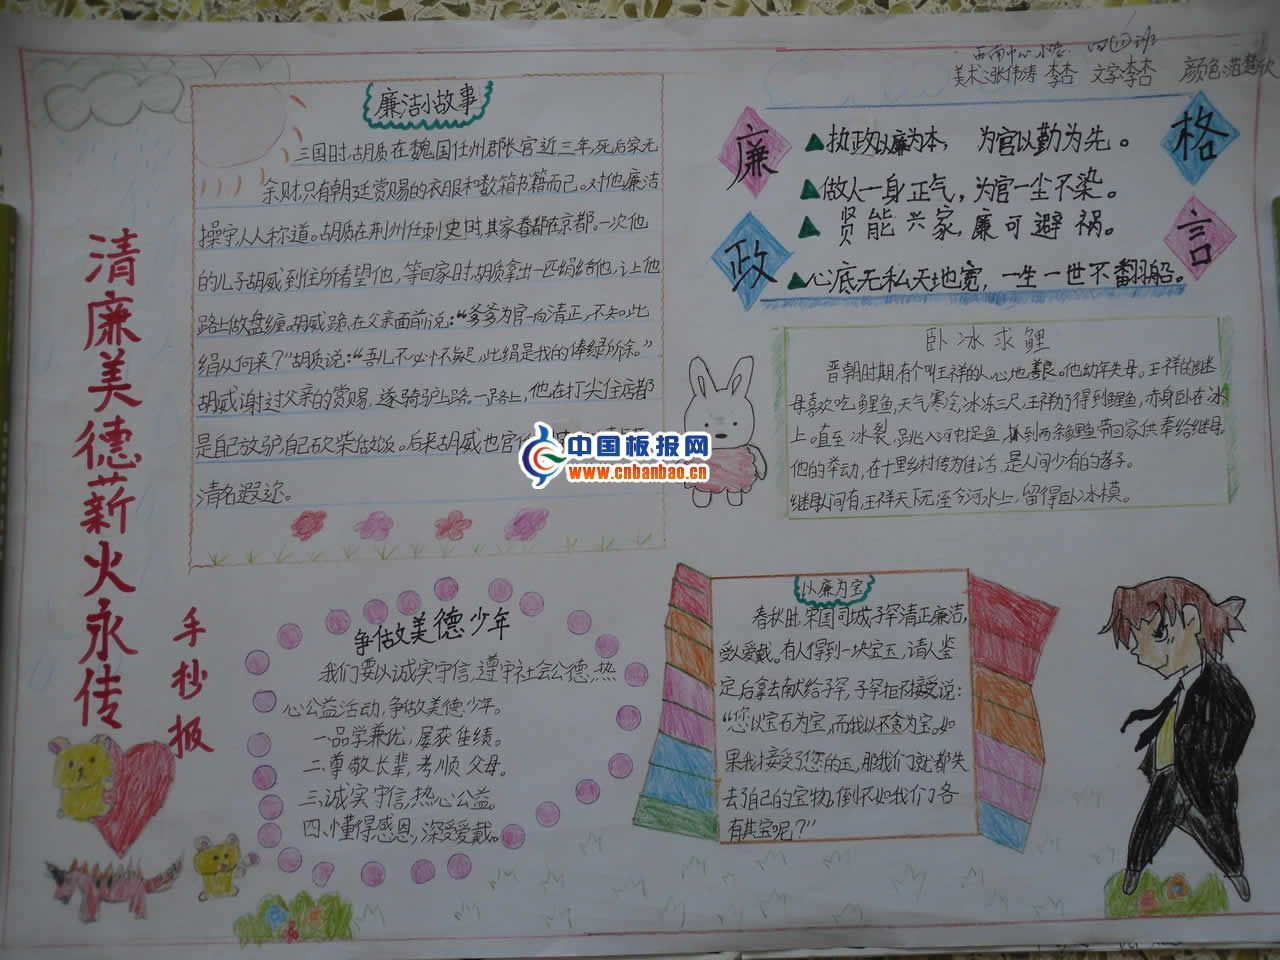 西南中心小学 四(四)班
美术:张伟涛 李杏 文字:李杏 颜色:范慧欣
清廉美德薪火永传
手抄报
廉洁小故事
三国时,胡质在魏国任州郡长官近三年,死后家无
余财,只有朝廷赏赐的衣服和数箱书籍而已。对他廉洁
操守人人称道。胡质在荆州任刺史时,其家眷都在京都。一次他
的儿子胡威到住所看望他,等回家时,胡质拿出一匹绢给他,让他
路上做盘缠。胡威跪在父亲面前说:“爹爹为官一向清正,不知此
绢从何来?”胡质说:“吾儿不必怀疑,此绢是我的俸绿所余。”
胡威谢过父亲的赏赐,遂骑驴上路。一路上,他在打尖住店都
是自己放驴,自己砍柴做饭。后来胡威也官
清名遐迩。
廉政格言
▲执政以廉为本, 为官以勤为先。
▲做人一身正气,为官一尘不染。
▲贤能兴家,廉可避祸。
▲心底无私天地宽,一生一世不翻船。
卧冰求鲤
晋朝时期,有个叫王祥的人,心地善良。他幼年失母。王祥的继
母喜欢吃鲤鱼,天气寒冷,冰冻三尺,王祥为了得到鲤鱼,赤身卧在冰
上。直至冰裂,跳入河中捉鱼,抓到两条鲤鱼带回家供奉给继母。
他的举动,在十里乡村传为佳话,是人间少有的孝子。
继母人间有,王祥天下无;至今河水上,留得卧冰模。
中国板报网
www.cnbanbao.cn
争做美德少年
我们要以诚实守信,遵守社会公德,热
心公益活动,争做美德少年。
一、品学兼优,屡获佳绩。
二、尊敬长辈,孝顺父母。
三、诚实守信,热心公益。
四、懂得感恩,深受爱戴。
以廉为宝
春秋时,宋国司城子罕清正廉洁,
受人爱戴。有人得到一块宝玉,请人鉴
定后拿去献给子罕,子罕拒不接受,说:
“您以宝石为宝,而我以不贪为宝。如
果我接受了您的玉,那我们就都失
去了自己的宝物,倒不如我们各
有其宝呢?”